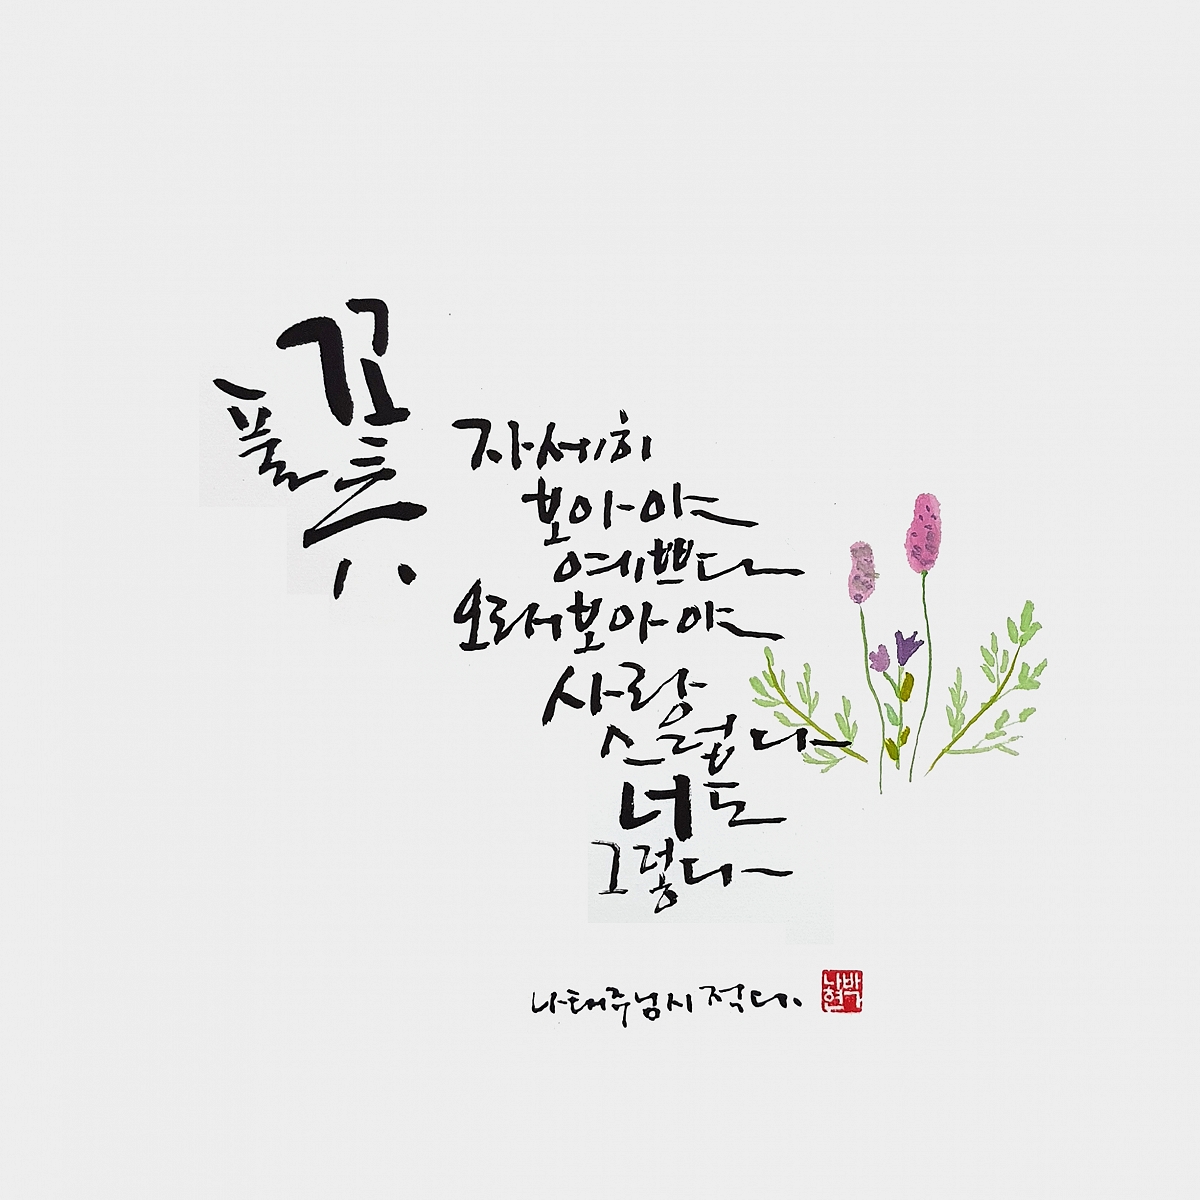 풀꽃
자세히
보아야
예쁘다
오래보아야
사랑
스럽다
너도
그렇다
나태주님시 적다.
박나현